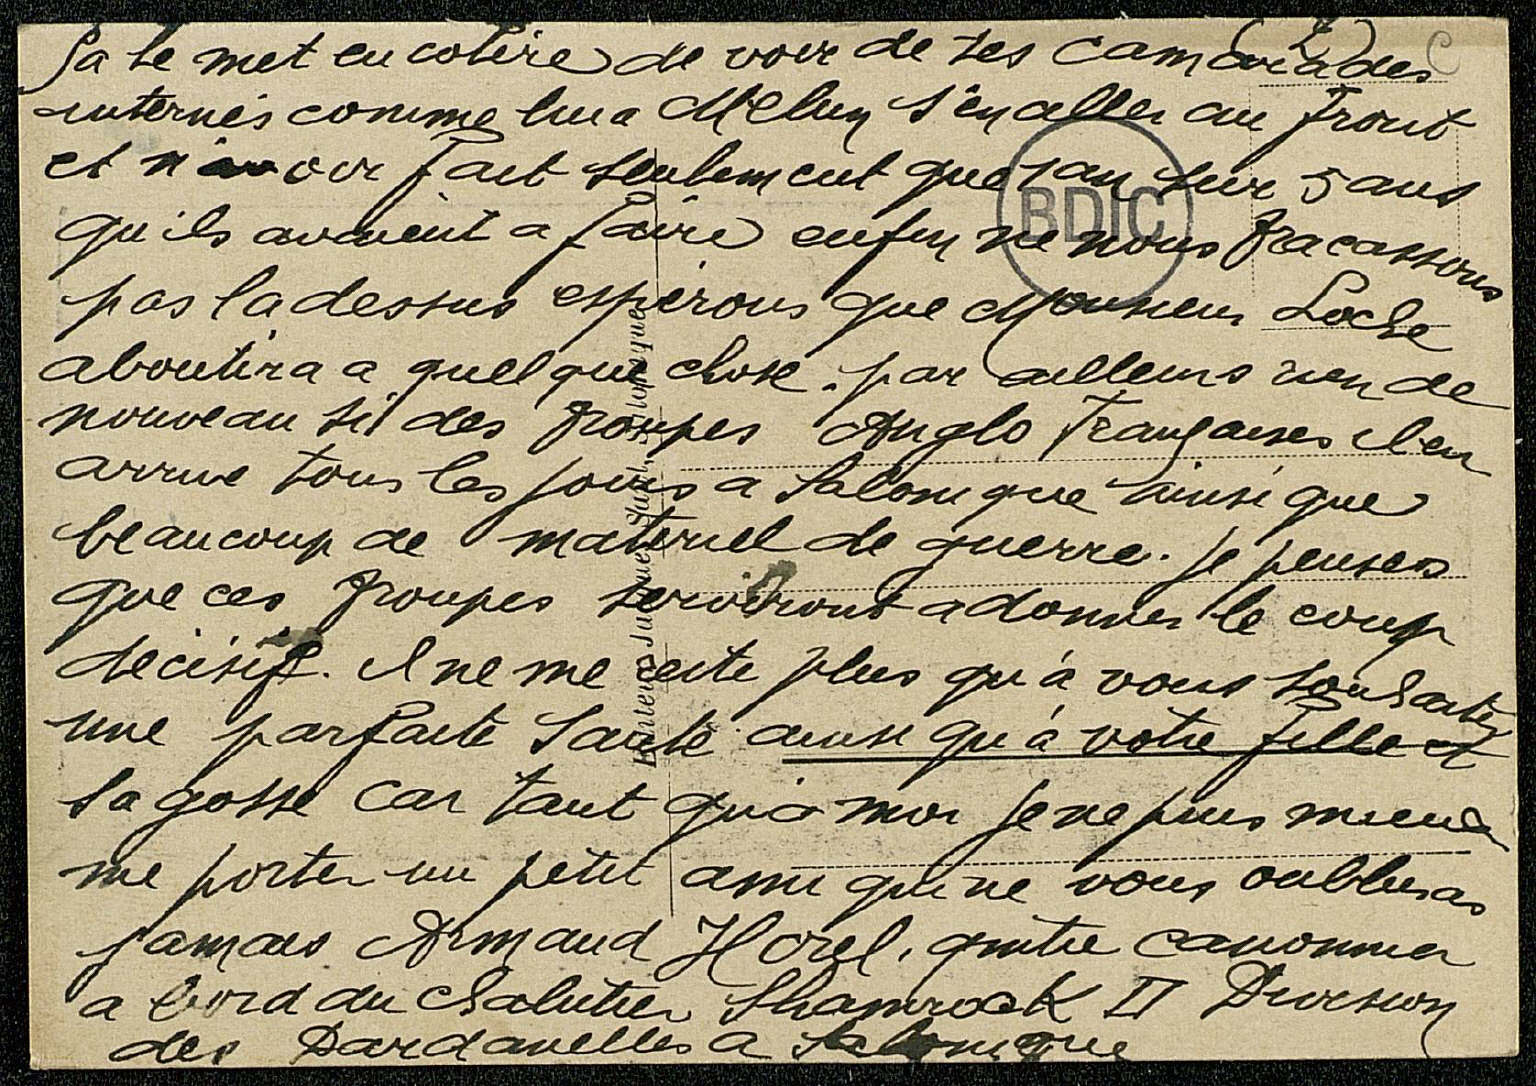 (2)
C
Sa le met en colère de voir de ses camarades
internés comme lui a Melun s'en aller au front
et n'avoir fait seulement que 1 an sur 5 ans
qu'ils avaient a faire enfin ne nous fracassons
pas la dessus espérons que Monsieur Loche
aboutira a quelque chose. par ailleurs rien de
nouveau si des troupes Anglo Françaises il en
arrive tous les jours a Salonique ainsi que
beaucoup de materiel de guerre. je penses
que ces troupes serviront a donner le coup
décisif. Il ne me reste plus qu'à vous souhaiter
une parfaite Santé ainsi qu'à votre fille et
sa gosse car tant qu'à moi je ne puis mieux
me porter un petit ami qui ne vous oublieras
jamais Armand Horel, quntre canonnier
a bord du chalutier Shamrock II Division
des Dardanelles a Salonique
BDIC